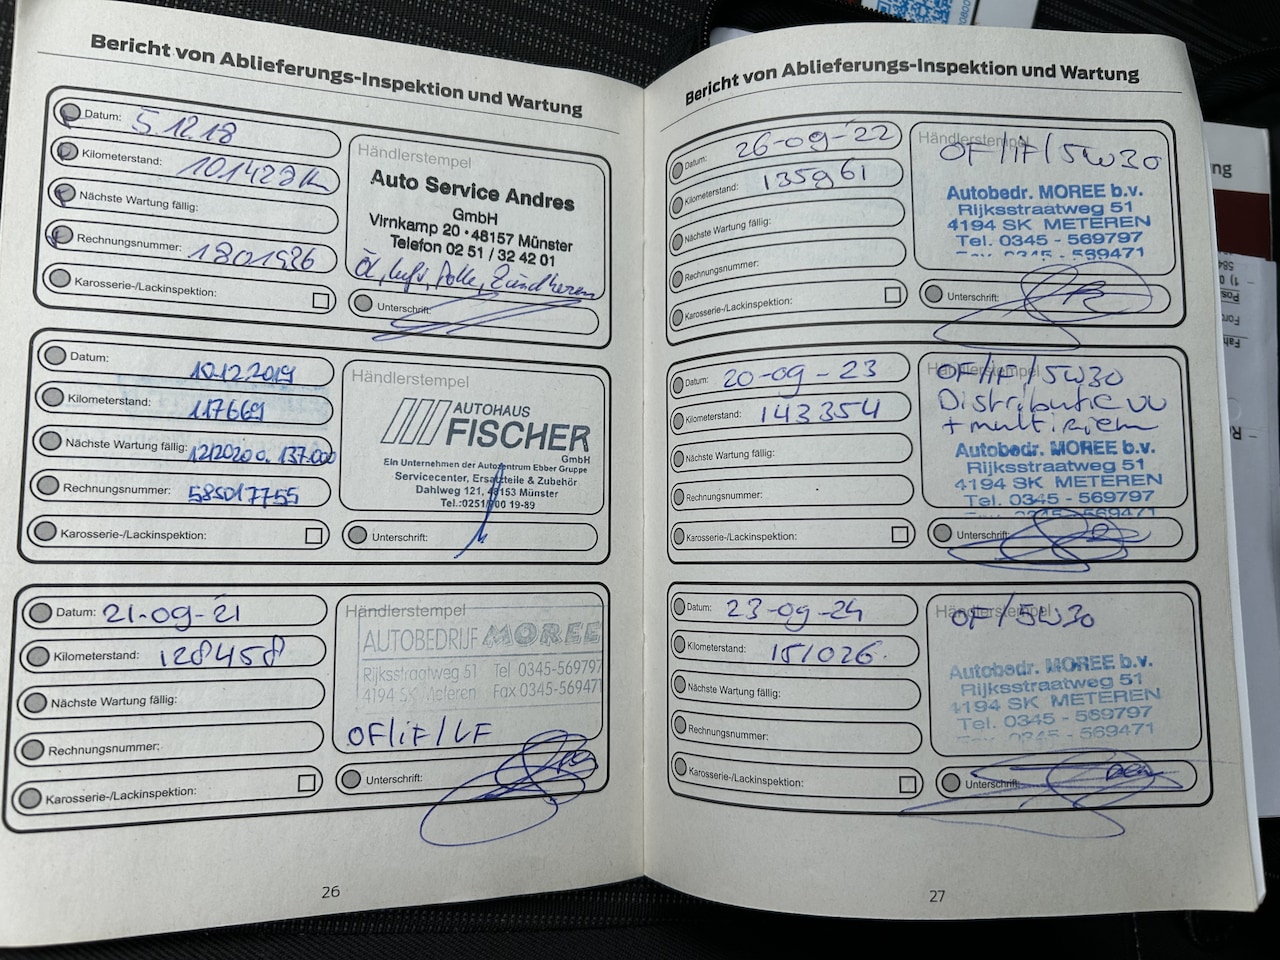 Bericht von Ablieferungs-Inspektion und Wartung
Datum: 5.12.18
Kilometerstand: 101423 km
Nächste Wartung fällig:
Rechnungsnummer: 1801926
Karosserie-/Lackinspektion:
Händlerstempel
Auto Service Andres
GmbH
Virnkamp 20 · 48157 Münster
Telefon 02 51 / 32 42 01
Öl, Luft, Polle, Zündkerzen
Unterschrift:
Datum: 10.12.2019
Kilometerstand: 117669
Nächste Wartung fällig: 12/2020 o. 137.000
Rechnungsnummer: 585017755
Karosserie-/Lackinspektion:
Händlerstempel
AUTOHAUS
FISCHER
GmbH
Ein Unternehmen der Autozentrum Ebber Gruppe
Servicecenter, Ersatzteile & Zubehör
Dahlweg 121, 48153 Münster
Tel.:0251/ 00 19-89
Unterschrift:
Datum: 21-09-21
Kilometerstand: 128458
Nächste Wartung fällig:
Rechnungsnummer:
Karosserie-/Lackinspektion:
Händlerstempel
AUTOBEDRIJF MOREE
Rijksstraatweg 51 Tel 0345-569797
4194 SK Meteren Fax 0345-569471
OF/iF/LF
Unterschrift:
26
Bericht von Ablieferungs-Inspektion und Wartung
Datum: 26-09-'22
Kilometerstand: 135961
Nächste Wartung fällig:
Rechnungsnummer:
Karosserie-/Lackinspektion:
Händlerstempel
OF/iF/5W30
Autobedr. MOREE b.v.
Rijksstraatweg 51
4194 SK METEREN
Tel. 0345 - 569797
Fax. 0345 - 569471
Unterschrift:
Datum: 20-09-23
Kilometerstand: 143354
Nächste Wartung fällig:
Rechnungsnummer:
Karosserie-/Lackinspektion:
Händlerstempel
OF/iF/5W30
Distributie vv
+ multiriem
Autobedr. MOREE b.v.
Rijksstraatweg 51
4194 SK METEREN
Tel. 0345 - 569797
0345 - 569471
Unterschrift:
Datum: 23-09-24
Kilometerstand: 151026
Nächste Wartung fällig:
Rechnungsnummer:
Karosserie-/Lackinspektion:
Händlerstempel
OF/5W30
Autobedr. MOREE b.v.
Rijksstraatweg 51
4194 SK METEREN
Tel. 0345 - 569797
Fax. 0345 - 569471
Unterschrift:
27